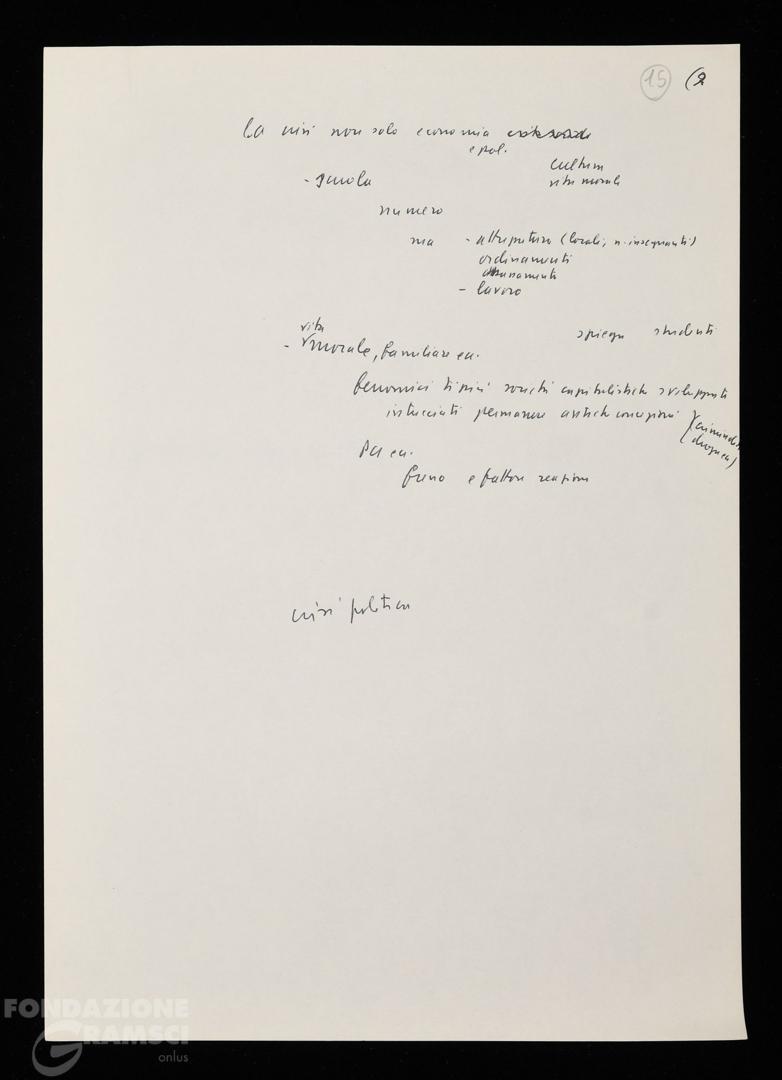 15 (2
La crisi non solo economia
e pol.
cultura
vita morale
- scuola
numero
ma - attrezzature (locali, n. insegnanti)
ordinamenti
- lavoro
spiega studenti
vita
- morale, familiare ecc.
fenomeni tipici società capitalistiche sviluppate
intrecciati permanere antiche concezioni (criminalità
droga ecc)
ecc.
freno e fattore reazione
crisi politica
FONDAZIONE
GRAMSCI
onlus